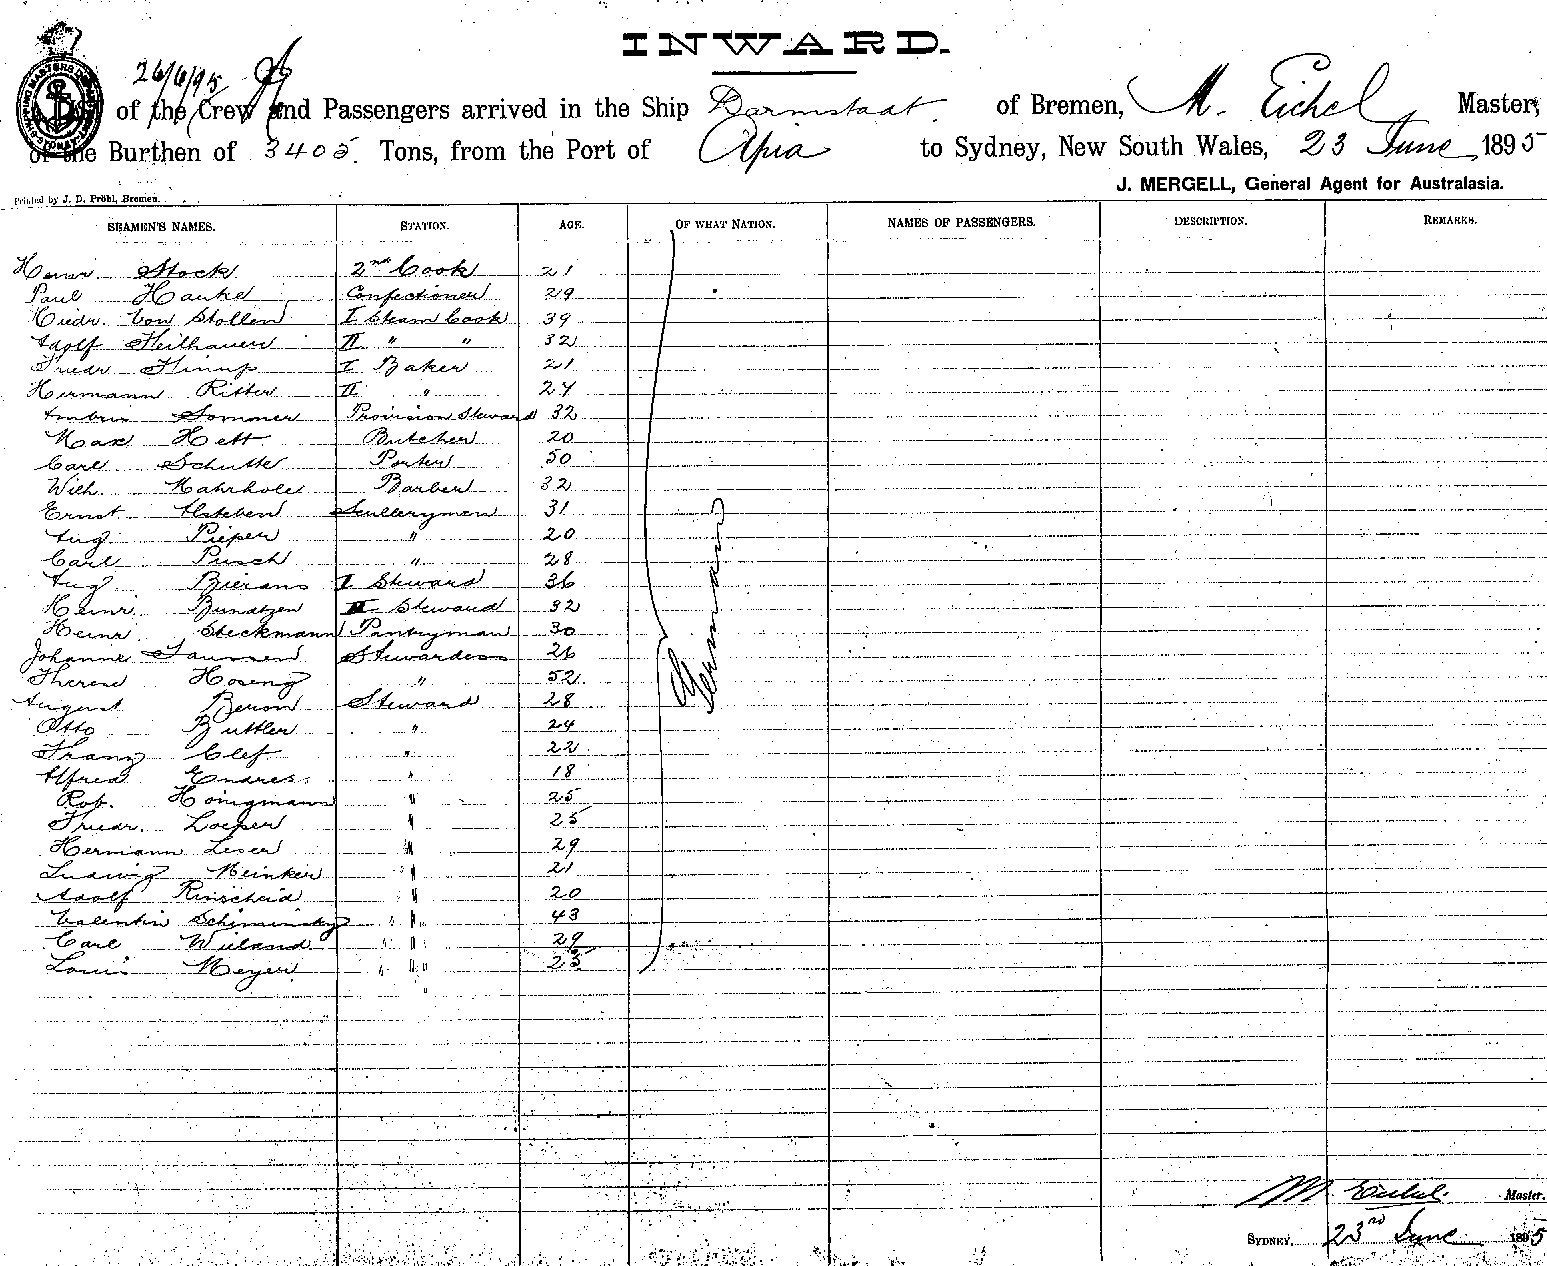 INWARD.
26/6/95
of the Crew and Passengers arrived in the Ship Darmstadt of Bremen, M. Eichel Master,
of the Burthen of 3405 Tons, from the Port of Apia to Sydney, New South Wales, 23 June 1895
J. MERGELL, General Agent for Australasia.
Printed by J. D. Pröhl, Bremen.
SEAMEN'S NAMES. STATION. AGE. OF WHAT NATION. NAMES OF PASSENGERS. DESCRIPTION. REMARKS.
Heinr Stock 2nd Cook 21
Paul Hanke Confectioner 29
Diedr. von Stollen I Steam Cook 39
Adolf Heilhauer II " " 32
Friedr I Baker 21
Hermann Ritter II " 24
Sommer Provision Steward 32
Max Hett Butcher 20
Carl Schutte Porter 50
Wilh. Mahrhole Barber 32
Ernst Alsleben Scullerymen 31
Aug Pieper " 20
Carl Pusch " 28
Aug Bierans I Steward 36
Heinr. Bundtzen II Steward 32
Heinr Steckmann Pantryman 30
Johanne Stewardess 26
Therese Hoseng " 52
August Beron Steward 28
Otto Buttler " 24
Franz Clef " 22
Alfred Endres " 18
Rob. Honigmann " 25
Friedr. Loeper " 25
Hermann Leser " 29
Ludwig Meinker " 21
Adolf Rinscheid " 20
Valentin Schiminsky " 43
Carl Wieland " 29
Louis Meyer " 25
Germans
M Eichel. Master.
SYDNEY, 23rd June 1895